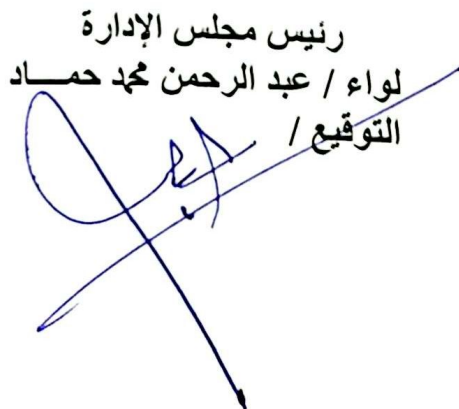 رئيس مجلس الإدارة
لواء / عبد الرحمن محمد حمـــاد
التوقيع /